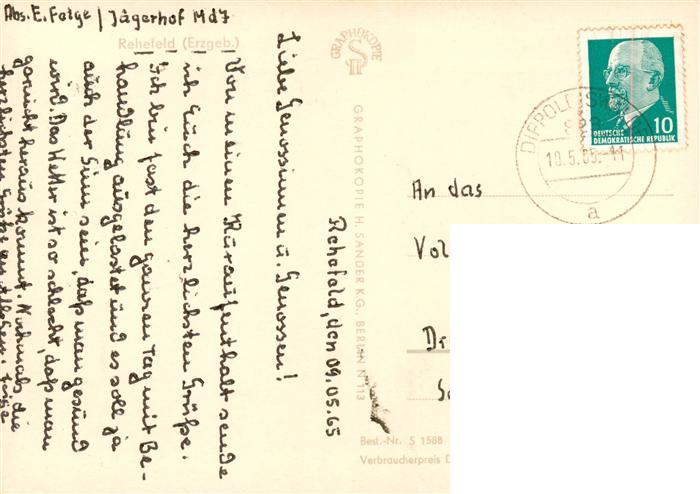 Abs. E. Felge / Jägerhof MdJ
Rehefeld (Erzgeb.)
Rehefeld, den 09.05.65
Liebe Genossinnen u. Genossen!
Von meinen Kuraufenthalt sende
ich Euch die herzlichsten Grüße.
Ich bin fast den ganzen Tag mit Be-
handlung ausgelastet und es soll ja
auch der Sinn sein, daß man gesund
wird. Das Wetter ist so schlecht, daß man
garnicht heraus kommt. Nochmals die
herzlichsten Grüße
GRAPHOKOPIE
GRAPHOKOPIE H. SANDER K.G., BERLIN N 113
Best.-Nr. S 1588
Verbraucherpreis D
DEUTSCHE
DEMOKRATISCHE REPUBLIK
10
10.5.65.-11
a
An das
Vol
Dr